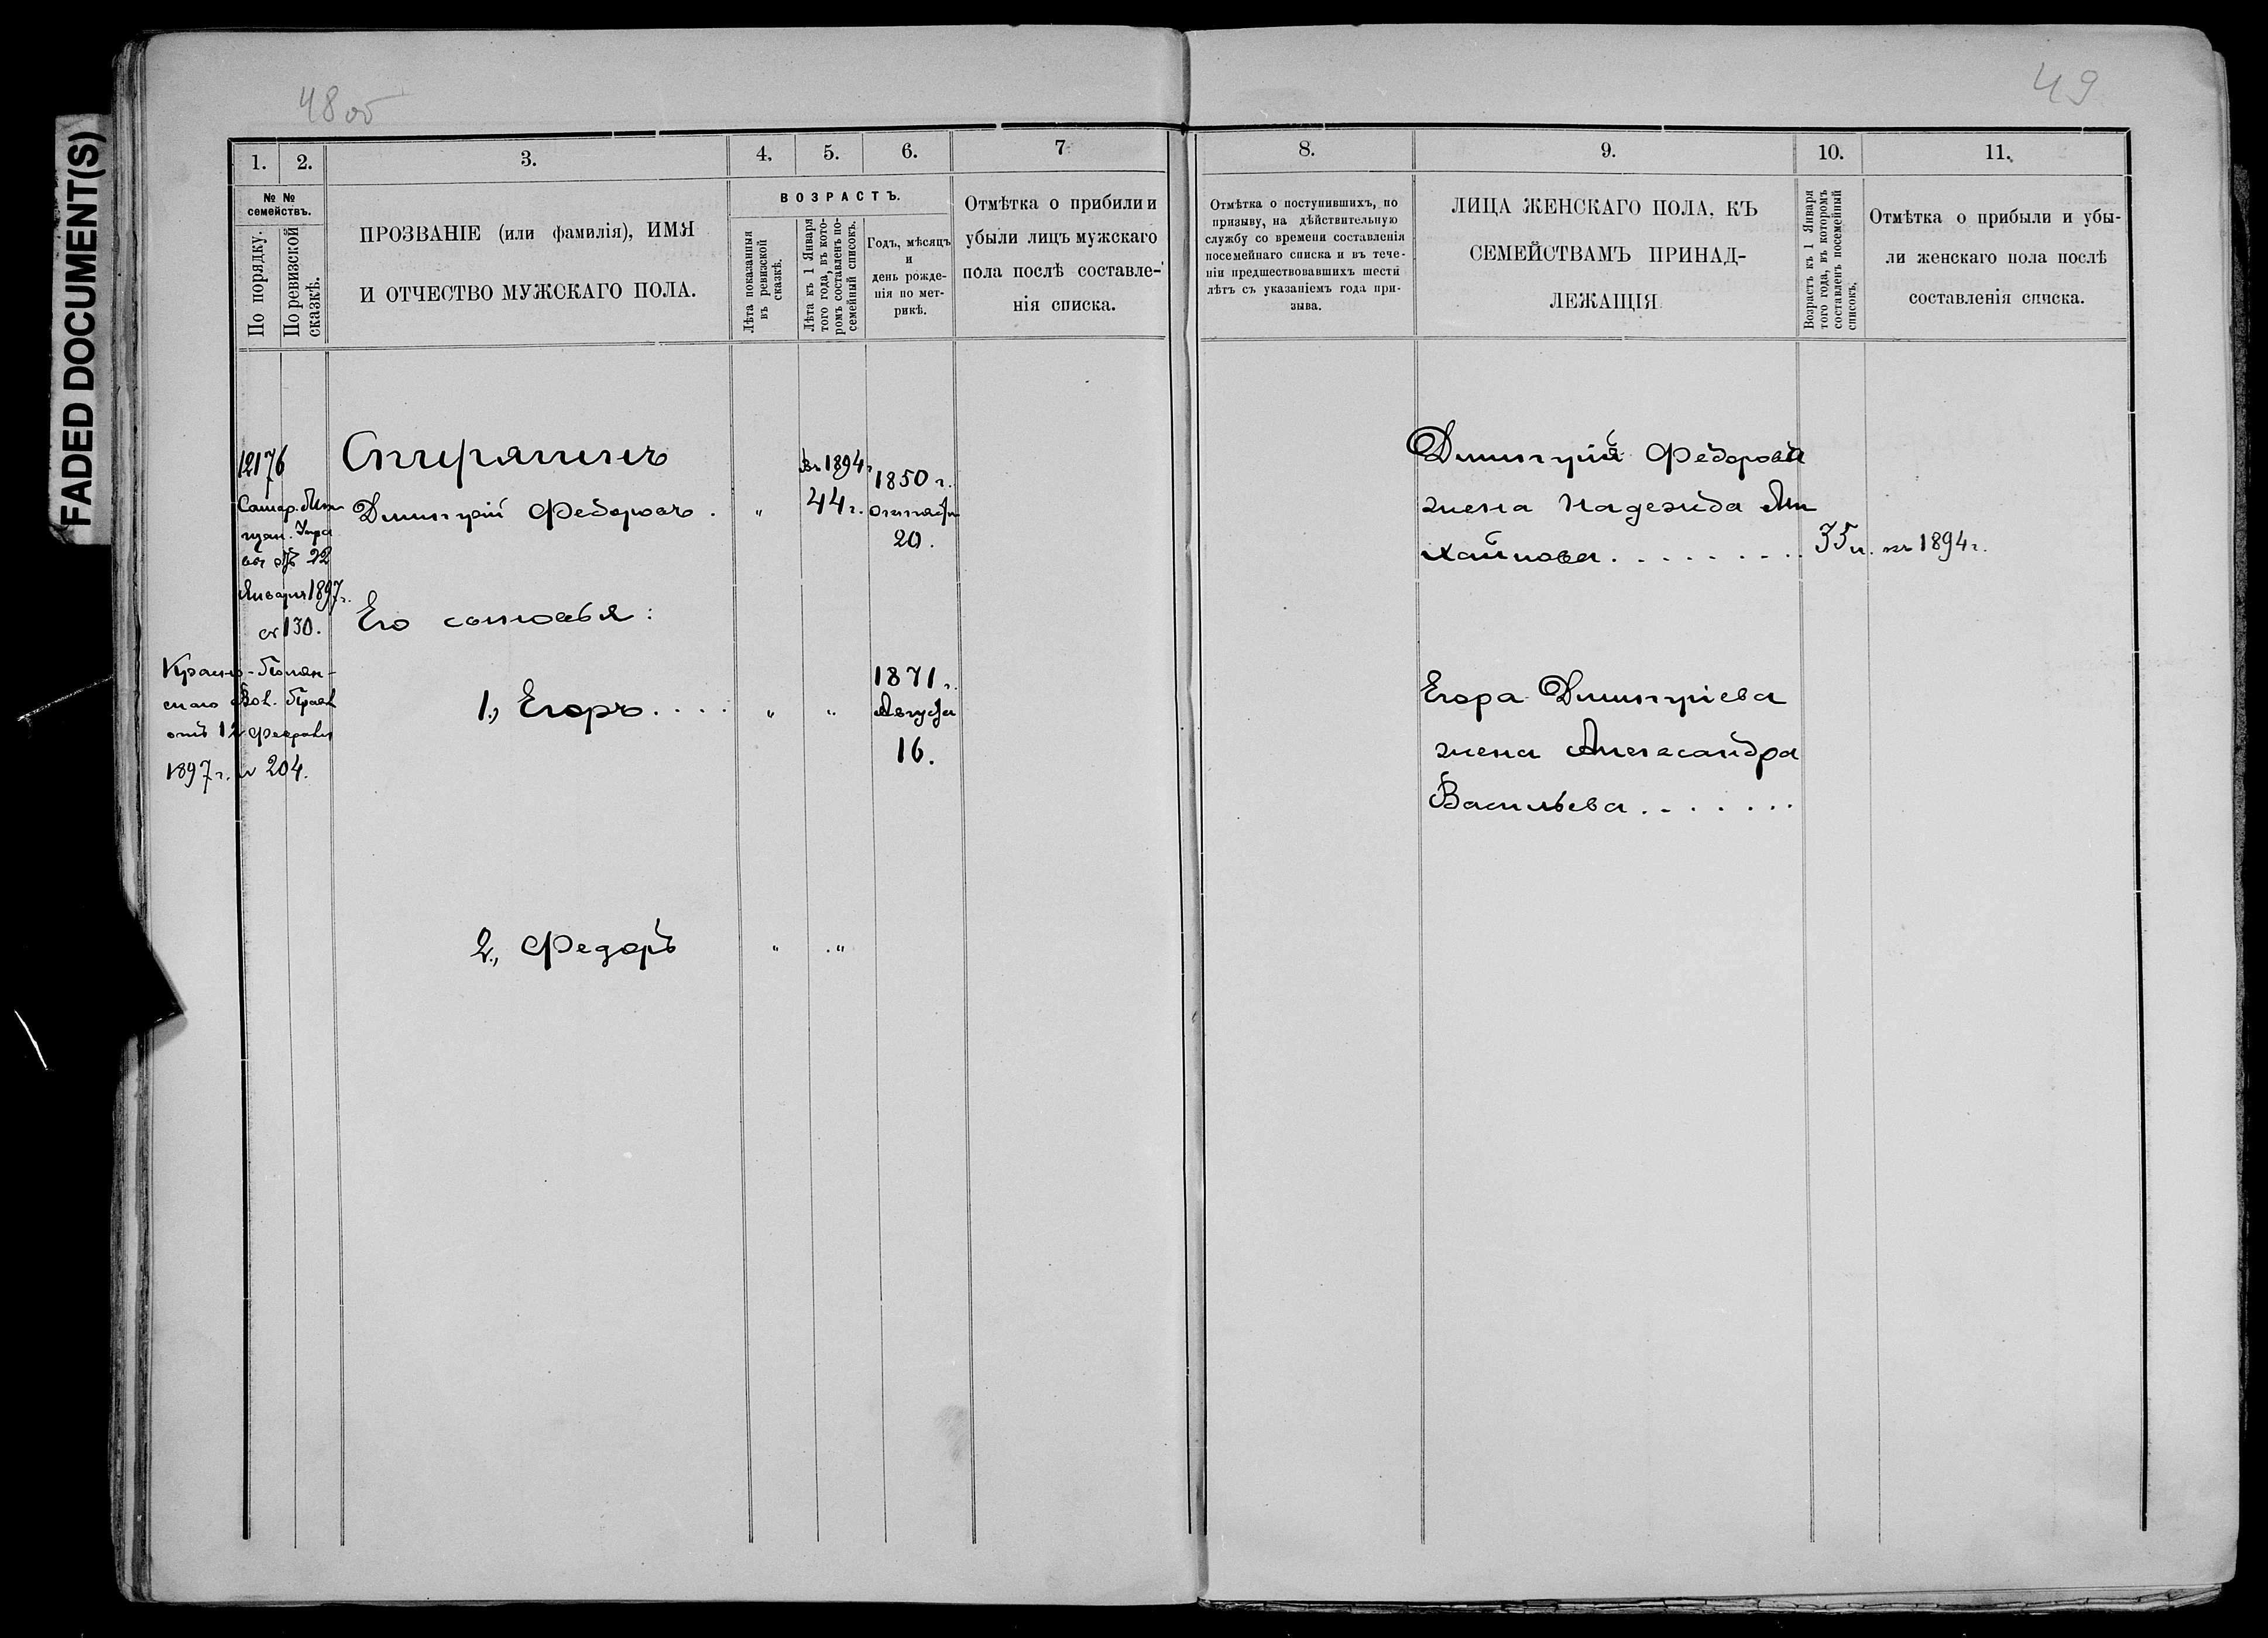 FADED DOCUMENT(S)
48 об
49
1.
2.
3.
4.
5.
6.
7
8.
9.
10.
11.
№ №
семействъ.
По порядку.
По ревизской
сказкѣ.
ПРОЗВАНІЕ (или фамилія), ИМЯ
И ОТЧЕСТВО МУЖСКАГО ПОЛА.
ВОЗРАСТЪ.
Лѣта показанныя
въ ревизской
сказкѣ.
Лѣта къ 1 Января
того года, въ кото-
ромъ составленъ по-
семейный списокъ.
Годъ, мѣсяцъ
и
день рожде-
нія по мет-
рикѣ.
Отмѣтка о прибили и
убыли лицъ мужскаго
пола послѣ составле-
нія списка.
Отмѣтка о поступившихъ, по
призыву, на дѣйствительную
службу со времени составленія
посемейнаго списка и въ тече-
ніи предшествовавшихъ шести
лѣтъ съ указаніемъ года при-
зыва.
ЛИЦА ЖЕНСКАГО ПОЛА, КЪ
СЕМЕЙСТВАМЪ ПРИНАД-
ЛЕЖАЩІЯ
Возрастъ къ 1 Января
того года, въ которомъ
составленъ посемейный
списокъ.
Отмѣтка о прибыли и убы-
ли женскаго пола послѣ
составленія списка.
12176
Самар. Мѣ
щан. Упра
22
Января 1897 г.
130.
Красно-Полян-
скаго Вол. Прав
отъ 12 Февраля
1897 г. № 204.
Дмитрій Федоровъ . "
въ 1894 г
44 г.
1850 г.
Октября
20.
Его сыновья:
1., Егоръ . . . . " "
1871 г.
Августа
16.
2., Федоръ " "
Дмитрія Федорова
жена Надежда Ми
хайлова . . . . . . . . . 35 л. къ 1894 г.
Егора Дмитріева
жена Александра
Васильева . . . . . . .